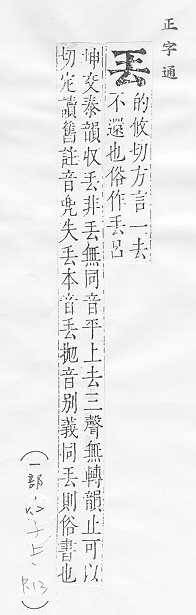 正字通
丟
的攸切方言一去
不還也俗作丟呂
坤交泰韻収丟非丟無同音平上去三聲無轉韻止可以
切定讀舊註音兜失丟本音丟抛音别義同丟則俗書也
(一部、子上、